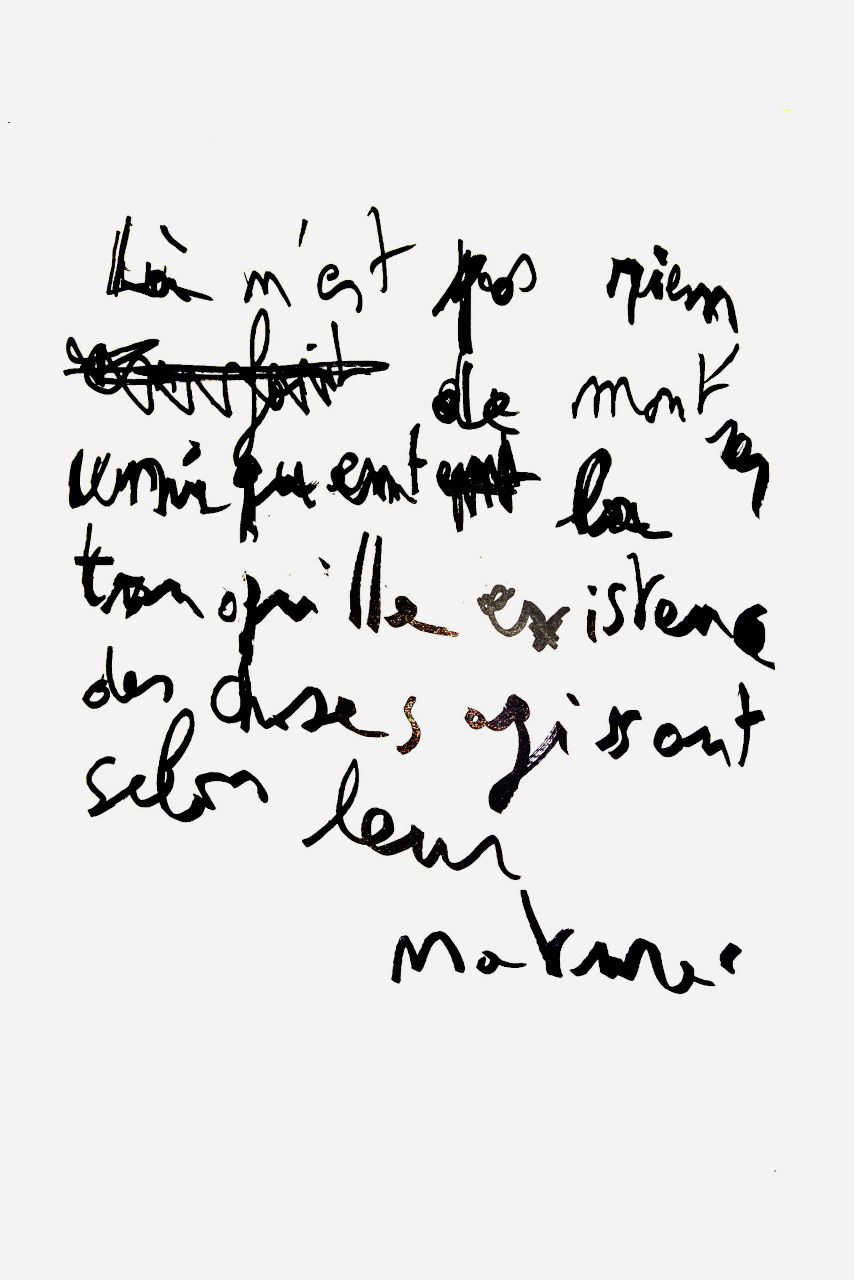 Là n'est pas rien
de montrer
uniquement la
tranquille existence
des choses agissant
selon leur
nature.